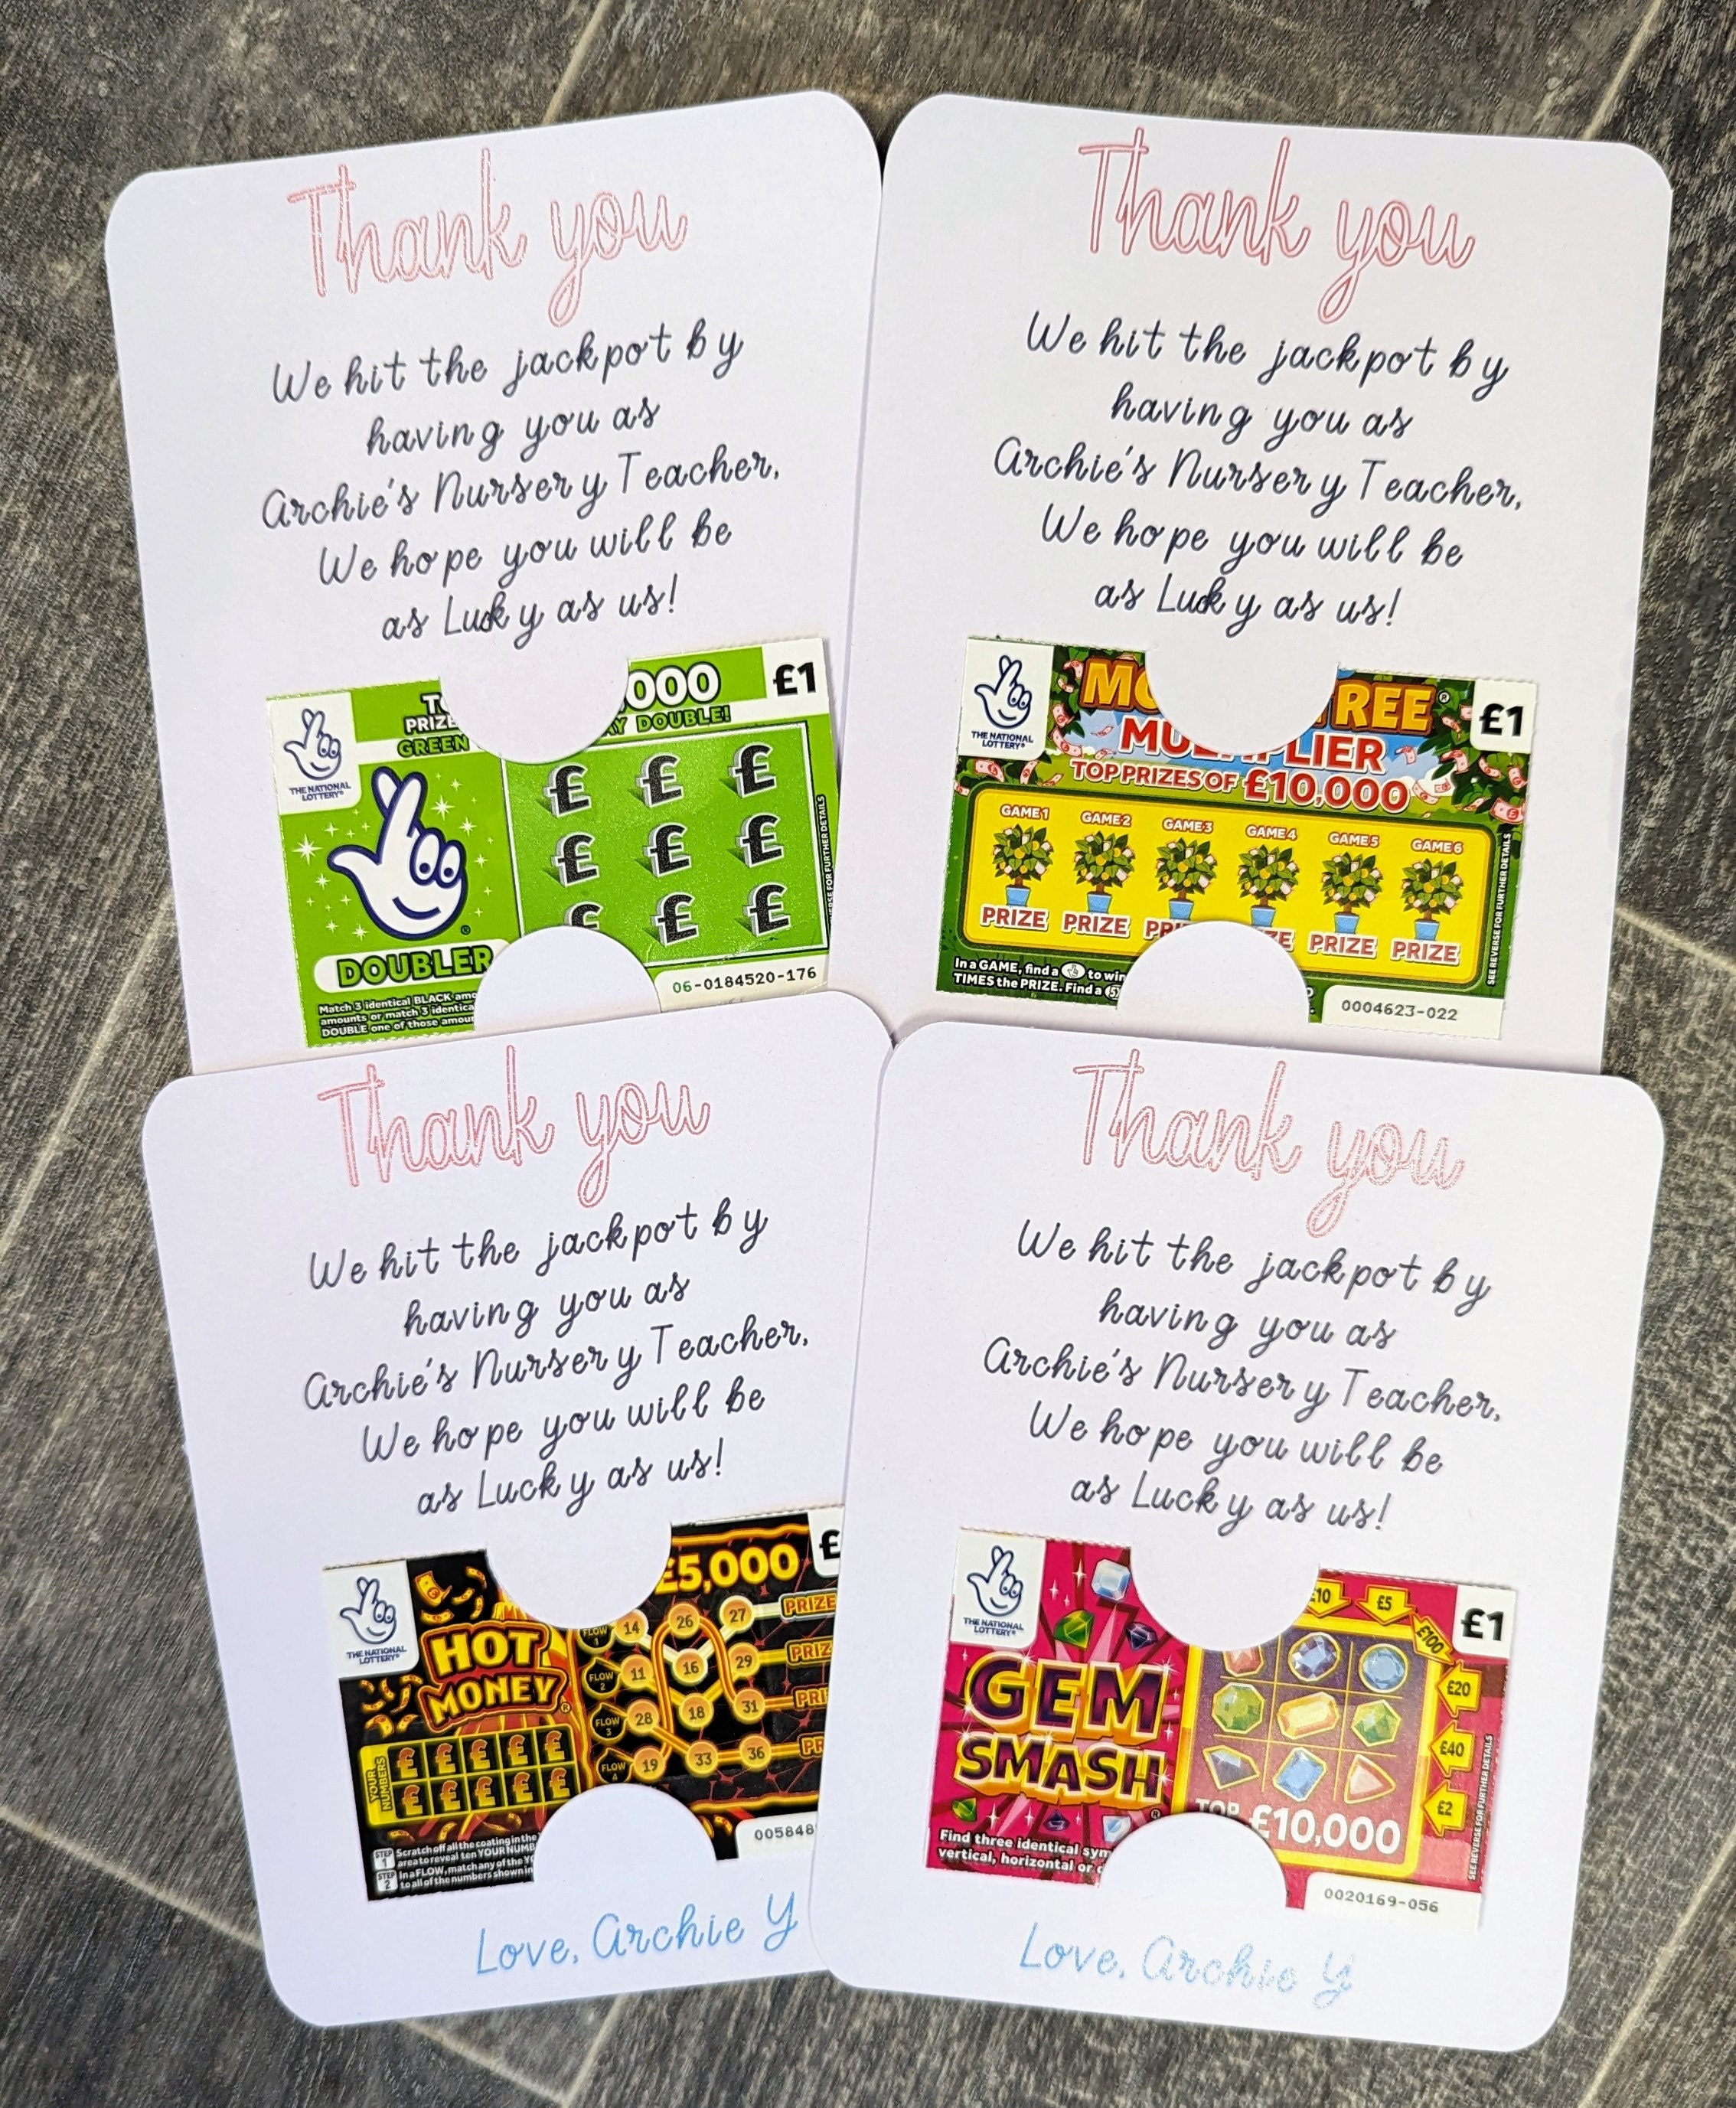 Thank you
We hit the jackpot by
having you as
Archie's Nursery Teacher,
We hope you will be
as Lucky as us!
THE NATIONAL
LOTTERY®
PRIZE
GREEN
000
DOUBLE!
£1
£ £ £
£ £ £
£ £ £
DOUBLER
Match 3 identical BLACK
amounts or match 3
DOUBLE one of those
06-0184520-176
FOR FURTHER DETAILS
Thank you
We hit the jackpot by
having you as
Archie's Nursery Teacher,
We hope you will be
as Lucky as us!
THE NATIONAL
LOTTERY®
£1
MULTIPLIER
TOP PRIZES OF £10,000
GAME 1 GAME 2 GAME 3 GAME 4 GAME 5 GAME 6
PRIZE PRIZE PRIZE PRIZE
In a GAME, find a to win
TIMES the PRIZE. Find a
SEE REVERSE FOR FURTHER DETAILS
0004623-022
Thank you
We hit the jackpot by
having you as
Archie's Nursery Teacher,
We hope you will be
as Lucky as us!
THE NATIONAL
LOTTERY®
£5,000
£
HOT
MONEY®
YOUR
NUMBERS
£ £ £ £ £
£ £ £ £ £
FLOW 1 14 26 27 PRIZE
FLOW 2 11 16 29
FLOW 3 28 18 31
FLOW 19 33 36
STEP 1 Scratch off all the coating in the
area to reveal ten YOUR
STEP 2 In a FLOW, match any of the
to all of the numbers shown in
005848
Love, Archie Y
Thank you
We hit the jackpot by
having you as
Archie's Nursery Teacher,
We hope you will be
as Lucky as us!
THE NATIONAL
LOTTERY®
£10 £5 £100
£1
£20
£40
£2
GEM
SMASH®
TOP £10,000
Find three identical
vertical, horizontal or
SEE REVERSE FOR FURTHER DETAILS
0020169-056
Love, Archie Y